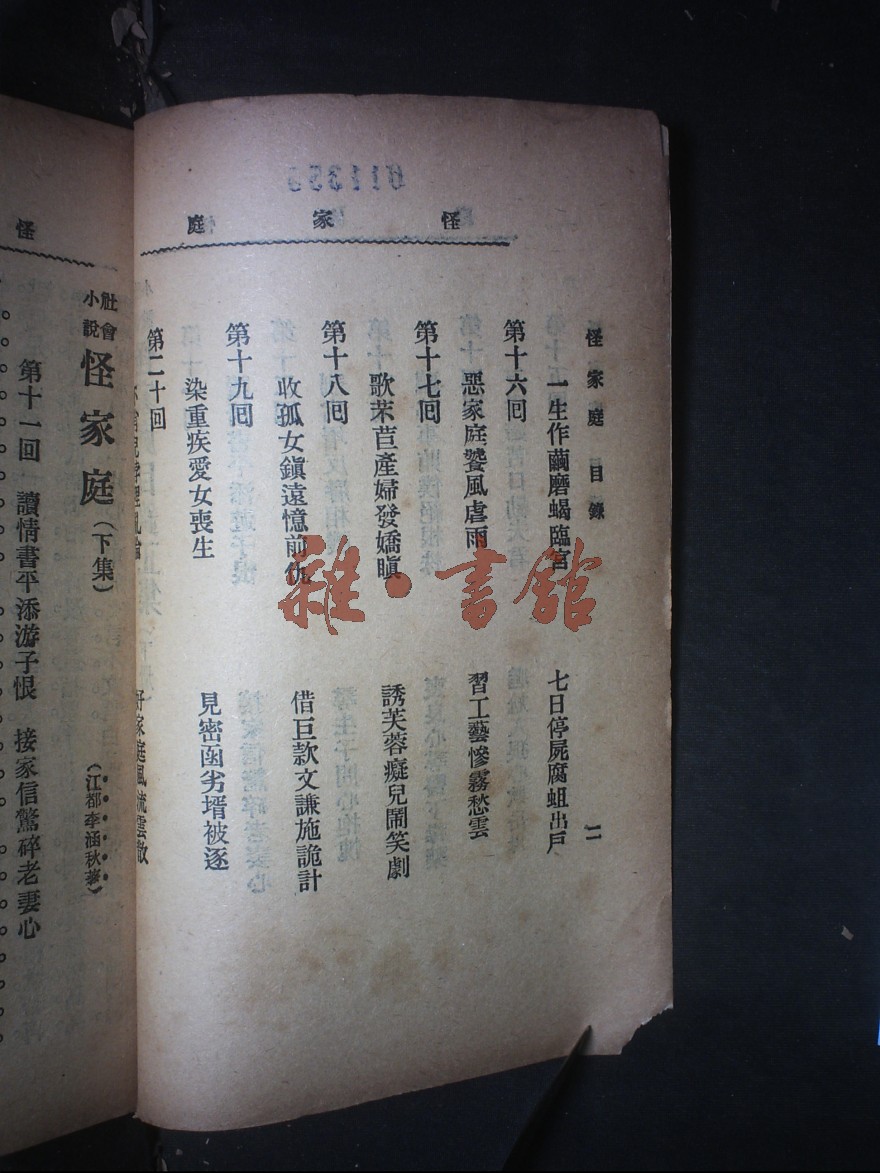 怪家庭
怪家庭 目錄 二
一生作繭磨蝎臨宮 七日停屍腐蛆出戶
第十六回
惡家庭饕風虐雨 習工藝慘霧愁雲
第十七回
歌芣苢產婦發嬌瞋 誘芙蓉癡兒鬧笑劇
第十八回
收孤女鎭遠憶前仇 借巨款文謙施詭計
第十九回
染重疾愛女喪生 見密函劣壻被逐
第二十回
好家庭風流雲散
怪
社會小說 怪家庭(下集)
(江都李涵秋著)
第十一回 讀情書平添游子恨 接家信驚碎老妻心
雜·書館